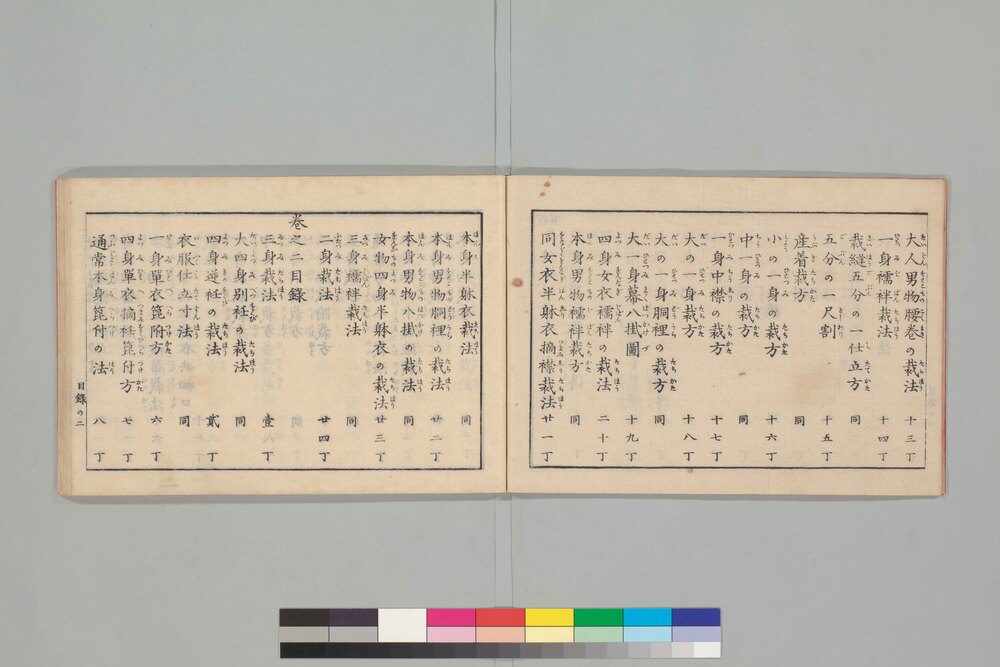 大人男物腰巻の裁法 十三丁
一身襦袢裁法 十四丁
裁縫五分の一仕立方 同
五分の一尺割 十五丁
産着裁方 同
小の一身の裁方 十六丁
中一身の裁方 同
一身中襟の裁方 十七丁
大の一身裁方 十八丁
大の一身胴裡の裁方 同
大一身幕八掛圖 十九丁
四身女衣襦袢の裁法 二十丁
本身男物襦袢裁方 同
同女衣半躰衣摘襟裁法 廿一丁
本身半躰衣裁法 同
本身男物胴裡の裁法 廿二丁
本身男物八掛の裁法 同
女物四身半躰衣の裁法 廿三丁
三身襦袢裁法 同
二身裁法 廿四丁
巻之二目録
三身裁法 壹丁
大四身別衽の裁法 同
四身逆衽の裁法 貳丁
衣服仕立寸法 同
一身單衣箆附方 六丁
四身單衣摘衽箆付方 七丁
通常本身箆付の法 八丁
目録の二